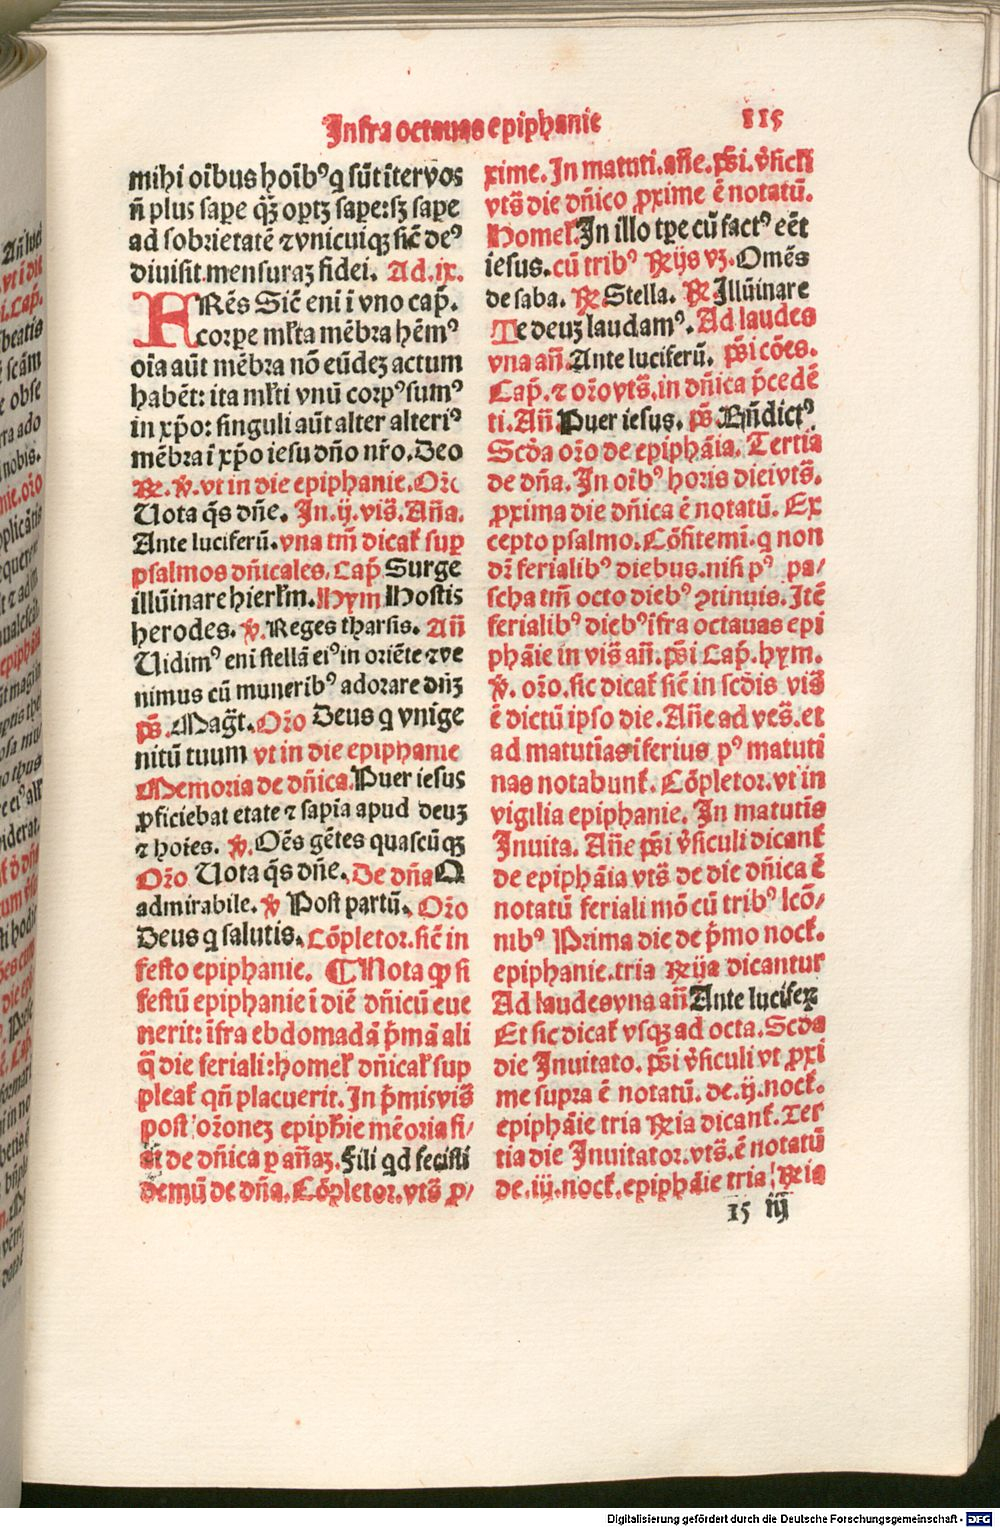 Infra octauas epiphanie
115
mihi oībus hoībꝰ q sūt īter vos
n̄ plus saꝑe qꝫ̄ oꝑtꝫ saꝑe: sꝫ saꝑe
ad sobrietatē ⁊ vnicuiqꝫ sic̄ deꝰ
diuisit mensuraꝫ fidei. Ad .ix.
FRēs Sic̄ eni i vno cap̄.
corꝑe ml̄ta mēbra hēmꝰ
oīa aūt mēbra nō eūdeꝫ actum
habēt: ita ml̄ti vnū corpꝰ sumꝰ
in xp̄o: singuli aūt alter alteriꝰ
mēbra ī xp̄o iesu dn̄o nr̄o. Deo
℟. ℣. vt in die epiphanie. Or̄o
Uota qs̄ dn̄e. In .ij. vis̄. An̄a.
Ante luciferū. vna tm̄ dicat᷑ suꝑ
psalmos dn̄icales. Cap̄. Surge
illūinare hierl̄m. Hym. Hostis
herodes. ℣. Reges tharsis. An̄
Uidimꝰ eni stellā eiꝰ in oriēte ⁊ ve
nimus cū muneribꝰ adorare dn̄ꝫ
ps̄. Maḡt. Oro Deus q vnige
nitū tuum vt in die epiphanie
Memoria de dn̄ica. Puer iesus
ꝓficiebat etate ⁊ sapīa apud deuꝫ
⁊ hoies. ℣. Oēs gētes quascūqꝫ
Oro Uota qs̄ dn̄e. De dn̄a O
admirabile. ℣ Post partū. Oro
Deus q salutis. Cōpletor. sic̄ in
festo epiphanie. ¶ Nota ꝙ si
festū epiphanie ī diē dn̄icū eue
nerit: īfra ebdomadā p̄mā ali
q̄ die feriali: homel᷑ dn̄icat᷑ sup
pleat᷑ qn̄ placuerit. In p̄mis vis̄
post or̄oneꝫ epiph̄ie mēoria fi/
at de dn̄ica ꝑ an̄aꝫ. Fili qd fecisti
Demū de dn̄a. Cōpletor. vts̄ ꝓ/
xime. In matuti. an̄e. ps̄i. v̄sicli
vts̄ die dn̄ico ꝓxime ē notatū.
Homel᷑. In illo tꝑe cū factꝰ eēt
iesus. cū tribꝰ ℟ijs vꝫ. Omēs
de saba. ℟ Stella. ℟ Illūinare
Te deuꝫ laudamꝰ. Ad laudes
vna an̄. Ante luciferū. ps̄i cōes.
Cap̄. ⁊ or̄o vts̄. in dn̄ica p̄cedē
ti. An̄. Puer iesus. ps̄. Bn̄dictꝰ.
Scd̄a oro de epiphāia. Tertia
de dn̄a. In oībꝰ horis diei vts̄.
ꝓxima die dn̄ica ē notatū. Ex
cepto psalmo. Cōfitemi. q non
dr̄ ferialibꝰ diebus. nisi pꝰ pa/
scha tm̄ octo diebꝰ ꝯtinuis. Itē
ferialibꝰ diebꝰ īfra octauas epi
phāie in vis̄ an̄. ps̄i Cap̄. hym.
℣. oro. sic dicat᷑ sic̄ in scd̄is vis̄
ē dictū ipso die. An̄e ad ves̄. et
ad matutīas iferius pꝰ matuti
nas notabunt᷑. Cōpletor. vt in
vigilia epiphanie. In matutis̄
Inuita. An̄e ps̄i v̄siculi dicant᷑
de epiphāia vts̄ de die dn̄ica ē
notatū feriali mō cū tribꝰ lcō/
nibꝰ Prima die de p̄mo noct᷑.
epiphanie. tria ℟ia dicantur
Ad laudes vna an̄ Ante lucifeꝝ
Et sic dicat᷑ vsqꝫ ad octa. Scd̄a
die Inuitato. ps̄i v̄siculi vt ꝓxi
me supra ē notatū. de .ij. noct᷑.
epiphāie tria ℟ia dicant᷑. Ter
tia die Inuitator. vts̄. ē notatū
de .iij. noct᷑. epiphāie tria ℟ia
15 iij
Digitalisierung gefördert durch die Deutsche Forschungsgemeinschaft - DFG